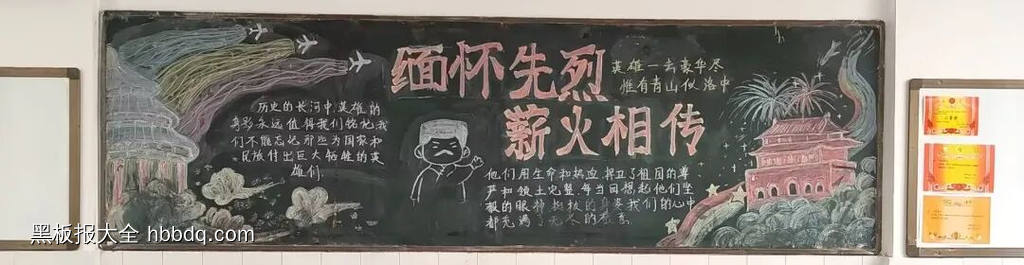 缅怀先烈
薪火相传
英雄一去豪华尽
惟有青山似洛中
历史的长河中英雄的
身影永远值得我们铭记我
们不能忘记那些为国家和
民族付出巨大牺牲的英
雄们
他们用生命和热血捍卫了祖国的尊
严和领土完整每当回想起他们坚
毅的眼神挺拔的身姿我们的心中
都充满了无尽的
黑板报大全 hbbdq.com